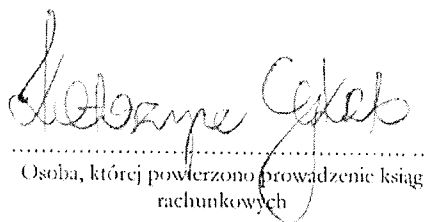 Katarzyna
Osoba, której powierzono prowadzenie ksiąg
rachunkowych